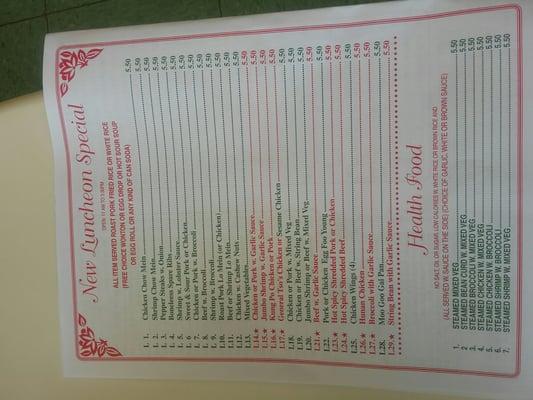 New Luncheon Special
OPEN 11 AM TO 3:00PM
ALL ITEM SERVED ROAST PORK FRIED RICE OR WHITE RICE
(FREE CHOICE WONTON OR EGG DROP OR HOT SOUR SOUP
OR EGG ROLL OR ANY KIND OF CAN SODA)
L 1. Chicken Chow Mein 5.50
L 2. Shrimp Chow Mein 5.50
L 3. Pepper Steaks w. Onion 5.50
L 4. Boneless Spareribs 5.50
L 5. Shrimp w. Lobster Sauce 5.50
L 6 Sweet & Sour Pork or Chicken 5.50
L 7. Chicken or Pork w. Broccoli 5.50
L 8. Beef w. Broccoli 5.50
L 9. Shrimp w. Broccoli 5.50
L10. Roast Pork Lo Mein (or Chicken) 5.50
L11. Beef or Shrimp Lo Mein 5.50
L12. Chicken w. Cashew Nuts 5.50
L13. Mixed Vegetables 5.50
L14.★ Chicken or Pork w. Garlic Sauce 5.50
L15.★ Jumbo Shrimp w. Garlic Sauce 5.50
L16.★ Kung Po Chicken or Pork 5.50
L17.★ General Tso's Chicken or Sesame Chicken 5.50
L18. Chicken or Pork w. Mixed Veg 5.50
L19. Chicken or Pork w. String Bean 5.50
L20. Jumbo Shrimp or Beef w. Mixed Veg 5.50
L21.★ Beef w. Garlic Sauce 5.50
L22. Pork or Chicken Egg Foo Young 5.50
L23.★ Hot Spicy Shredded Pork or Chicken 5.50
L24.★ Hot Spicy Shredded Beef 5.50
L25. Chicken Wings (4) 5.50
L26.★ Hunan Chicken 5.50
L27.★ Broccoli with Garlic Sauce 5.50
L28. Moo Goo Gai Pan 5.50
L29.★ String Bean with Garlic Sauce 5.50
Health Food
NO SALT, OIL OR SUGAR, LOW CALORIES W. WHITE RICE OR BROWN RICE AND
(ALL SERVED W. SAUCE ON THE SIDE) (CHOICE OF GARLIC, WHITE OR BROWN SAUCE)
1. STEAMED MIXED VEG 5.50
2. STEAMED BEAN CURD W. MIXED VEG 5.50
3. STEAMED BROCCOLI W. MIXED VEG 5.50
4. STEAMED CHICKEN W. MIXED VEG 5.50
5. STEAMED CHICKEN W. BROCCOLI 5.50
6. STEAMED SHRIMP W. BROCCOLI 5.50
7. STEAMED SHRIMP W. MIXED VEG 5.50